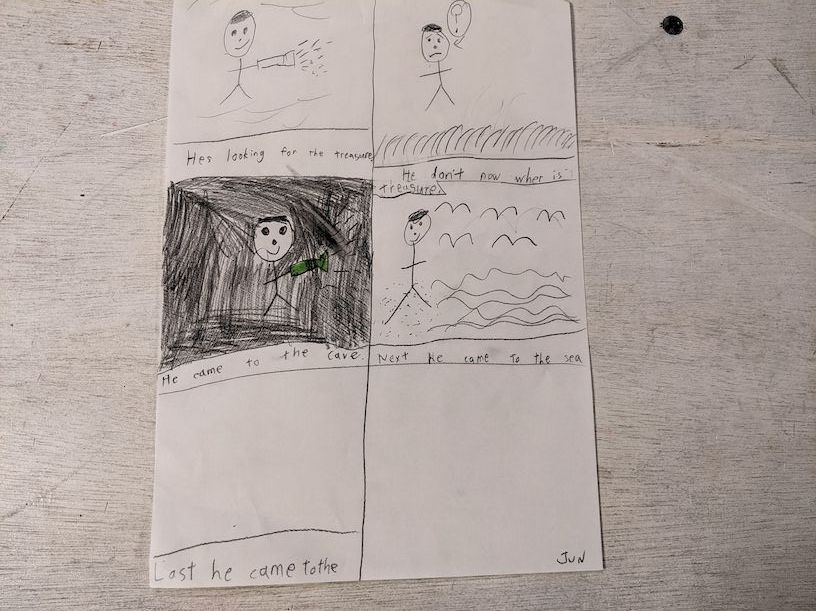 Hes looking for the treasure
He don't now wher is
treasure
He came to the cave.
Next he came to the sea
Last he came to the
JUN